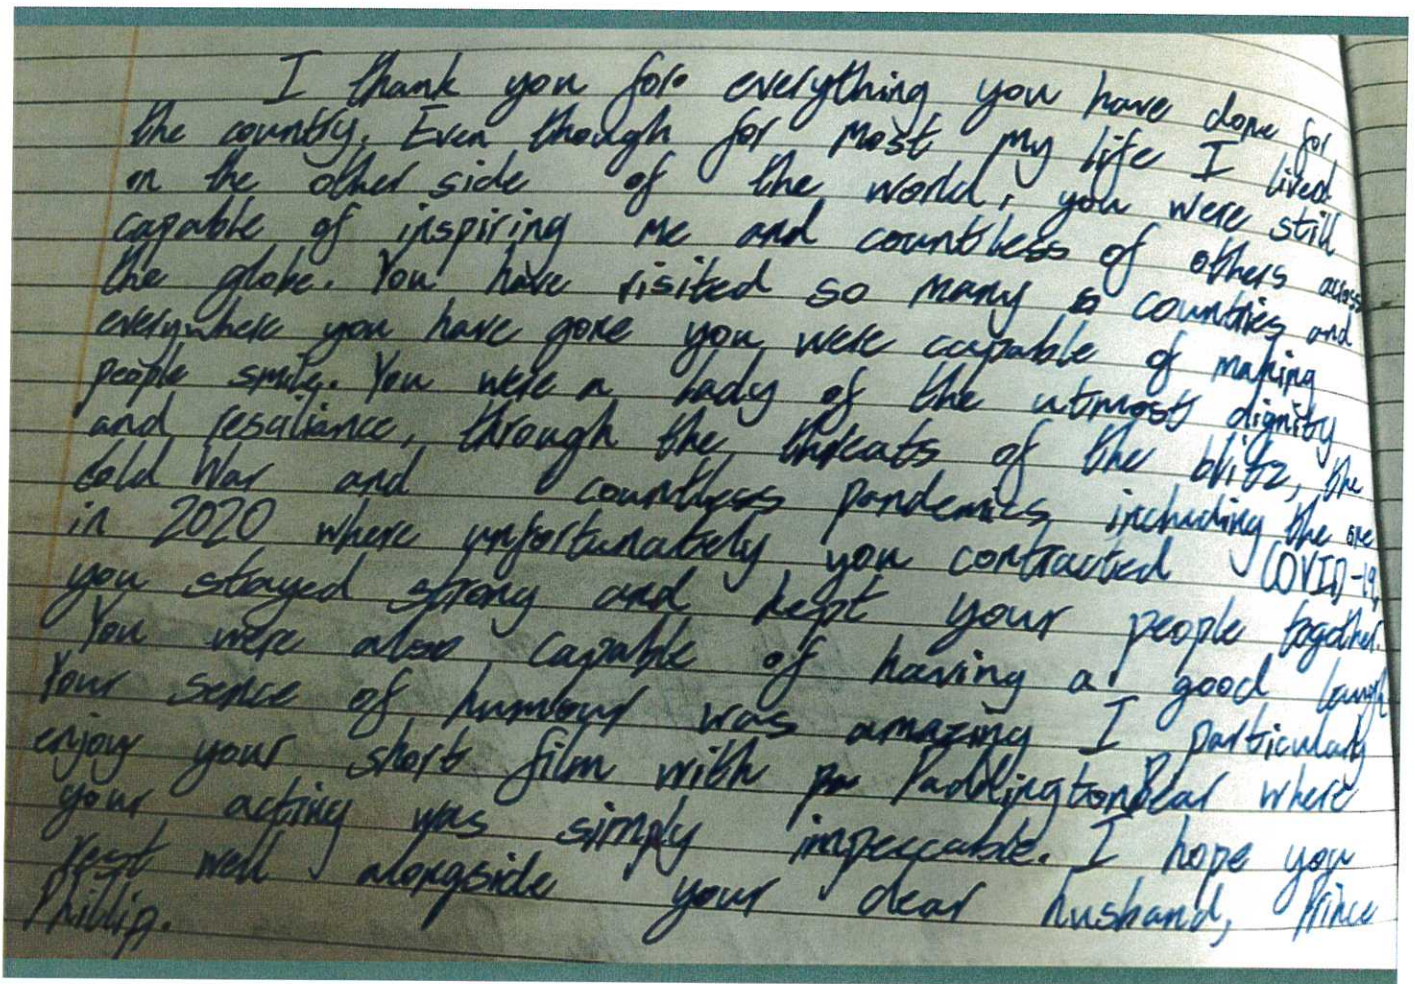 I thank you for everything you have done for
the country. Even though for most my life I lived
on the other side of the world, you were still
capable of inspiring me and countless of others across
the globe. You have visited so many countries and
everywhere you have gone you were capable of making
people smile. You were a lady of the utmost dignity
and resiliance, through the threats of the blitz, the
Cold War and countless pandemics including the one
in 2020 where unfortunately you contracted COVID-19,
you stayed strong and kept your people together.
You were also capable of having a good laugh
Your sence of humour was amazing I particularly
enjoy your short film with Paddington Bear where
your acting was simply impeccable. I hope you
rest well alongside your dear husband, Prince
Phillip.